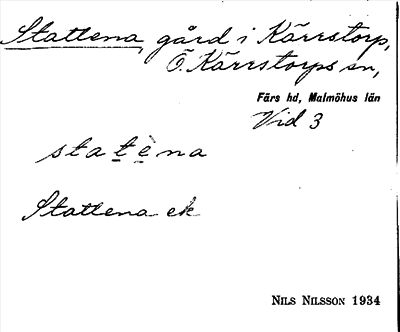 Stattena, gård i Kärrstorp,
Ö. Kärrstorps sn,
Färs hd, Malmöhus län
Vid 3
statèna
Stattena ek
NILS NILSSON 1934